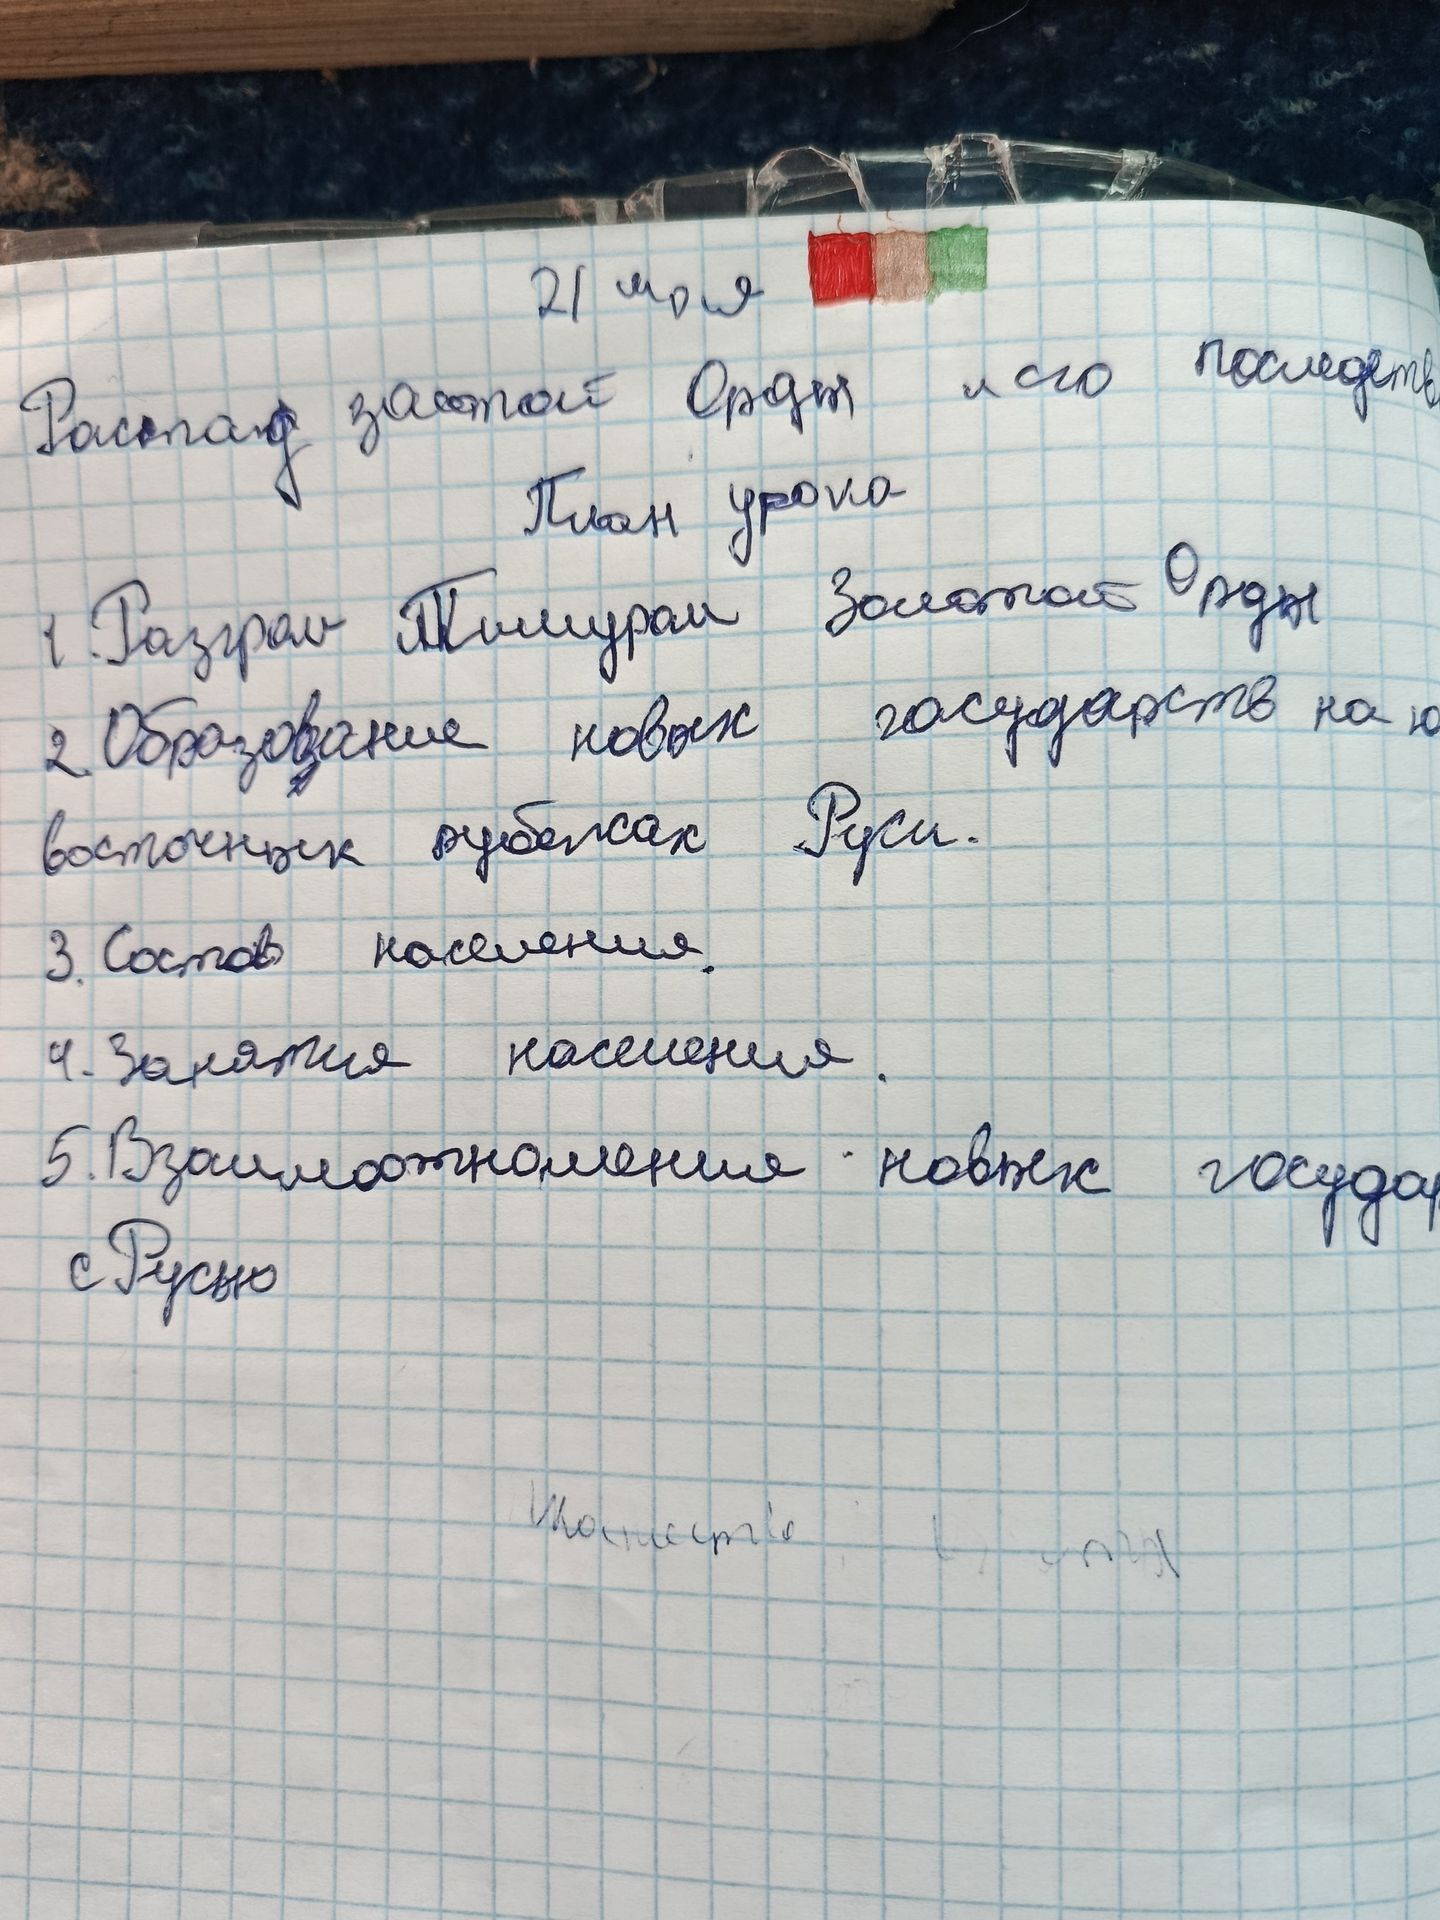 21 мая
Распад золотой Орды и его последств
План урока
1. Разгром Тимуром Золотой Орды
2. Образование новых государств на ю
восточных рубежах Руси.
3. Состав населения.
4. Занятия населения.
5. Взаимоотношения новых государ
с Русью